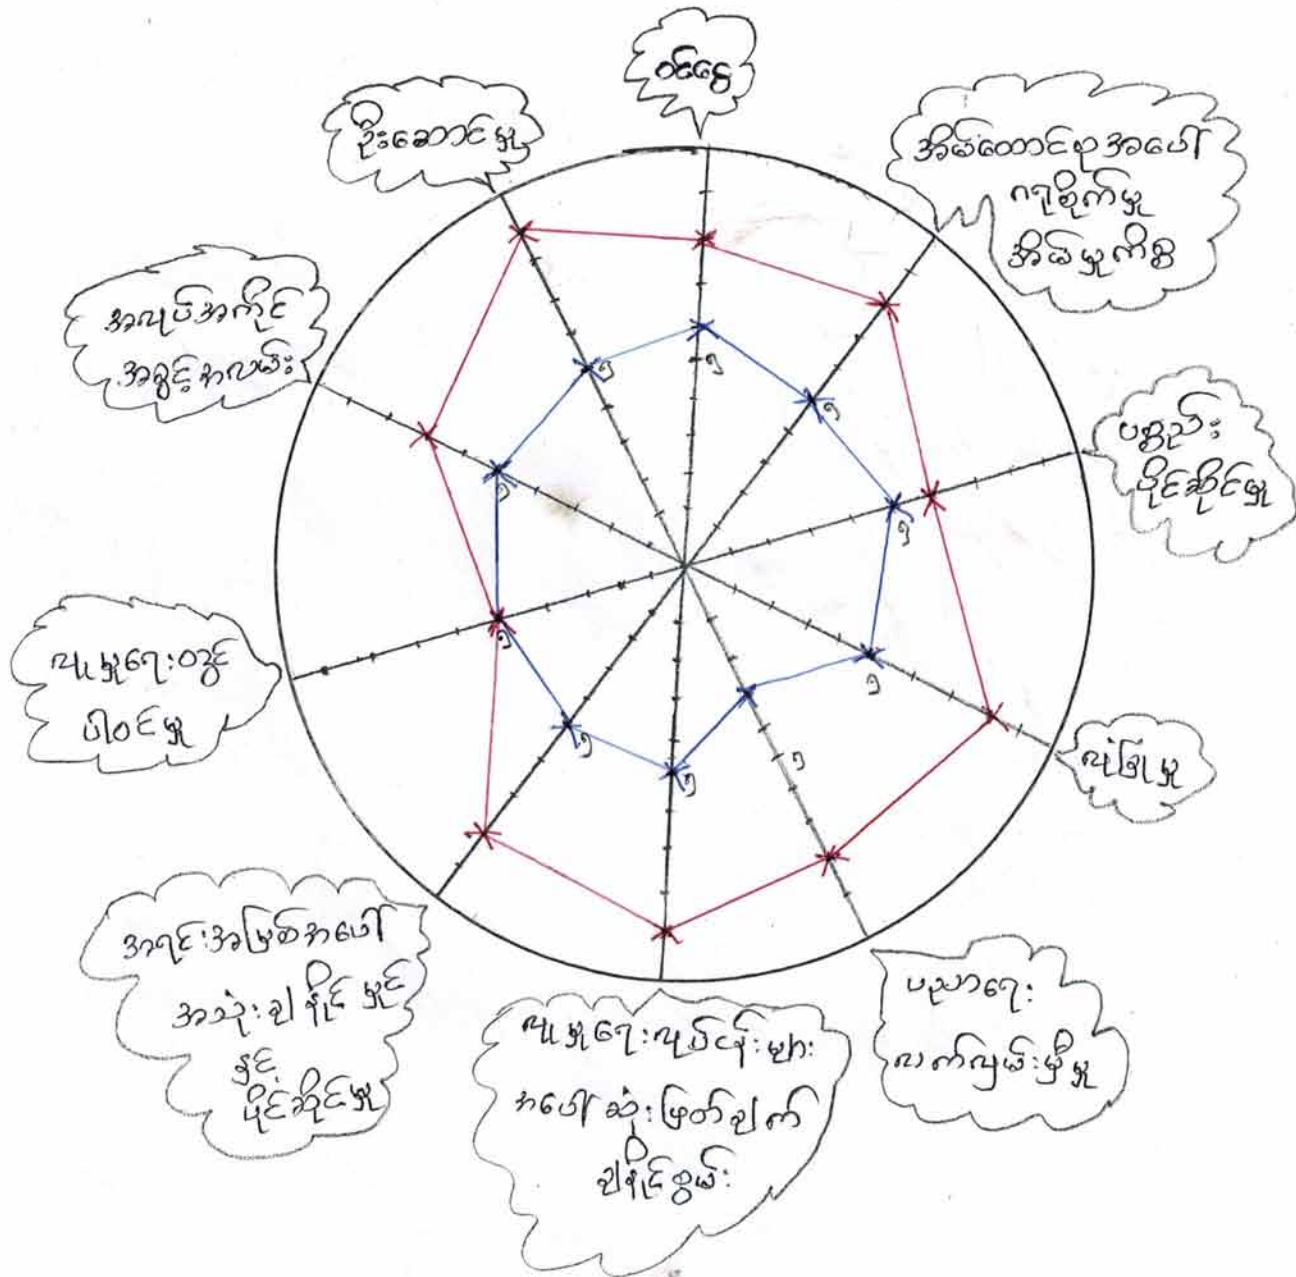 ဝင်ငွေ
အိမ်ထောင်စုအပေါ်
ဂရုစိုက်မှု
အိမ်မှုကိစ္စ
ပစ္စည်း
ပိုင်ဆိုင်မှု
လုံခြုံမှု
ပညာရေး
လက်လှမ်းမှီမှု
လူမှုရေးလုပ်ငန်းများ
အပေါ်ဆုံးဖြတ်ချက်
ချနိုင်စွမ်း
အရင်းအမြစ်အပေါ်
အသုံးချနိုင်မှုင်
နှင့်
ပိုင်ဆိုင်မှု
လူမှုရေးတွင်
ပါဝင်မှု
အလုပ်အကိုင်
အခွင့်အလမ်း
ဦးဆောင်မှု
၅
၅
၅
၅
၅
၅
၅
၅
၅
၅